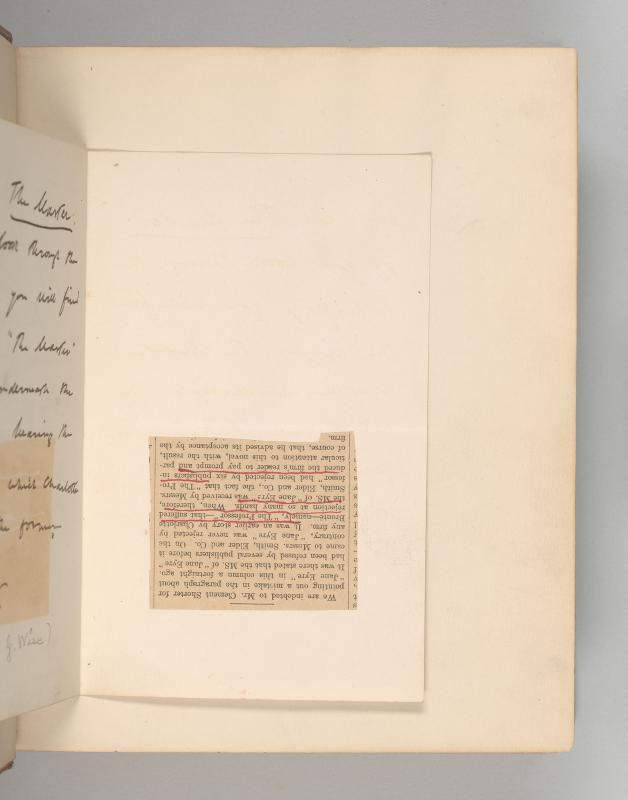 The Master.
look through the
you will find
"The Master"
underneath the
bearing the
which Charlotte
the former
J. Wise)
We are indebted to Mr. Clement Shorter for
pointing out a mistake in the paragraph about
"Jane Eyre" in this column a fortnight ago.
It was there stated that the MS. of "Jane Eyre"
had been refused by several publishers before it
came to Messrs. Smith, Elder and Co. On the
contrary, "Jane Eyre" was never rejected by
any firm. It was an earlier story by Charlotte
Bronte—namely, "The Professor"—that suffered
rejection at so many hands. When, therefore,
the MS. of "Jane Eyre" was received by Messrs.
Smith, Elder and Co., the fact that "The Pro-
fessor" had been rejected by six publishers in-
duced the firm's reader to pay prompt and par-
ticular attention to this novel, with the result,
of course, that he advised its acceptance by the
firm.